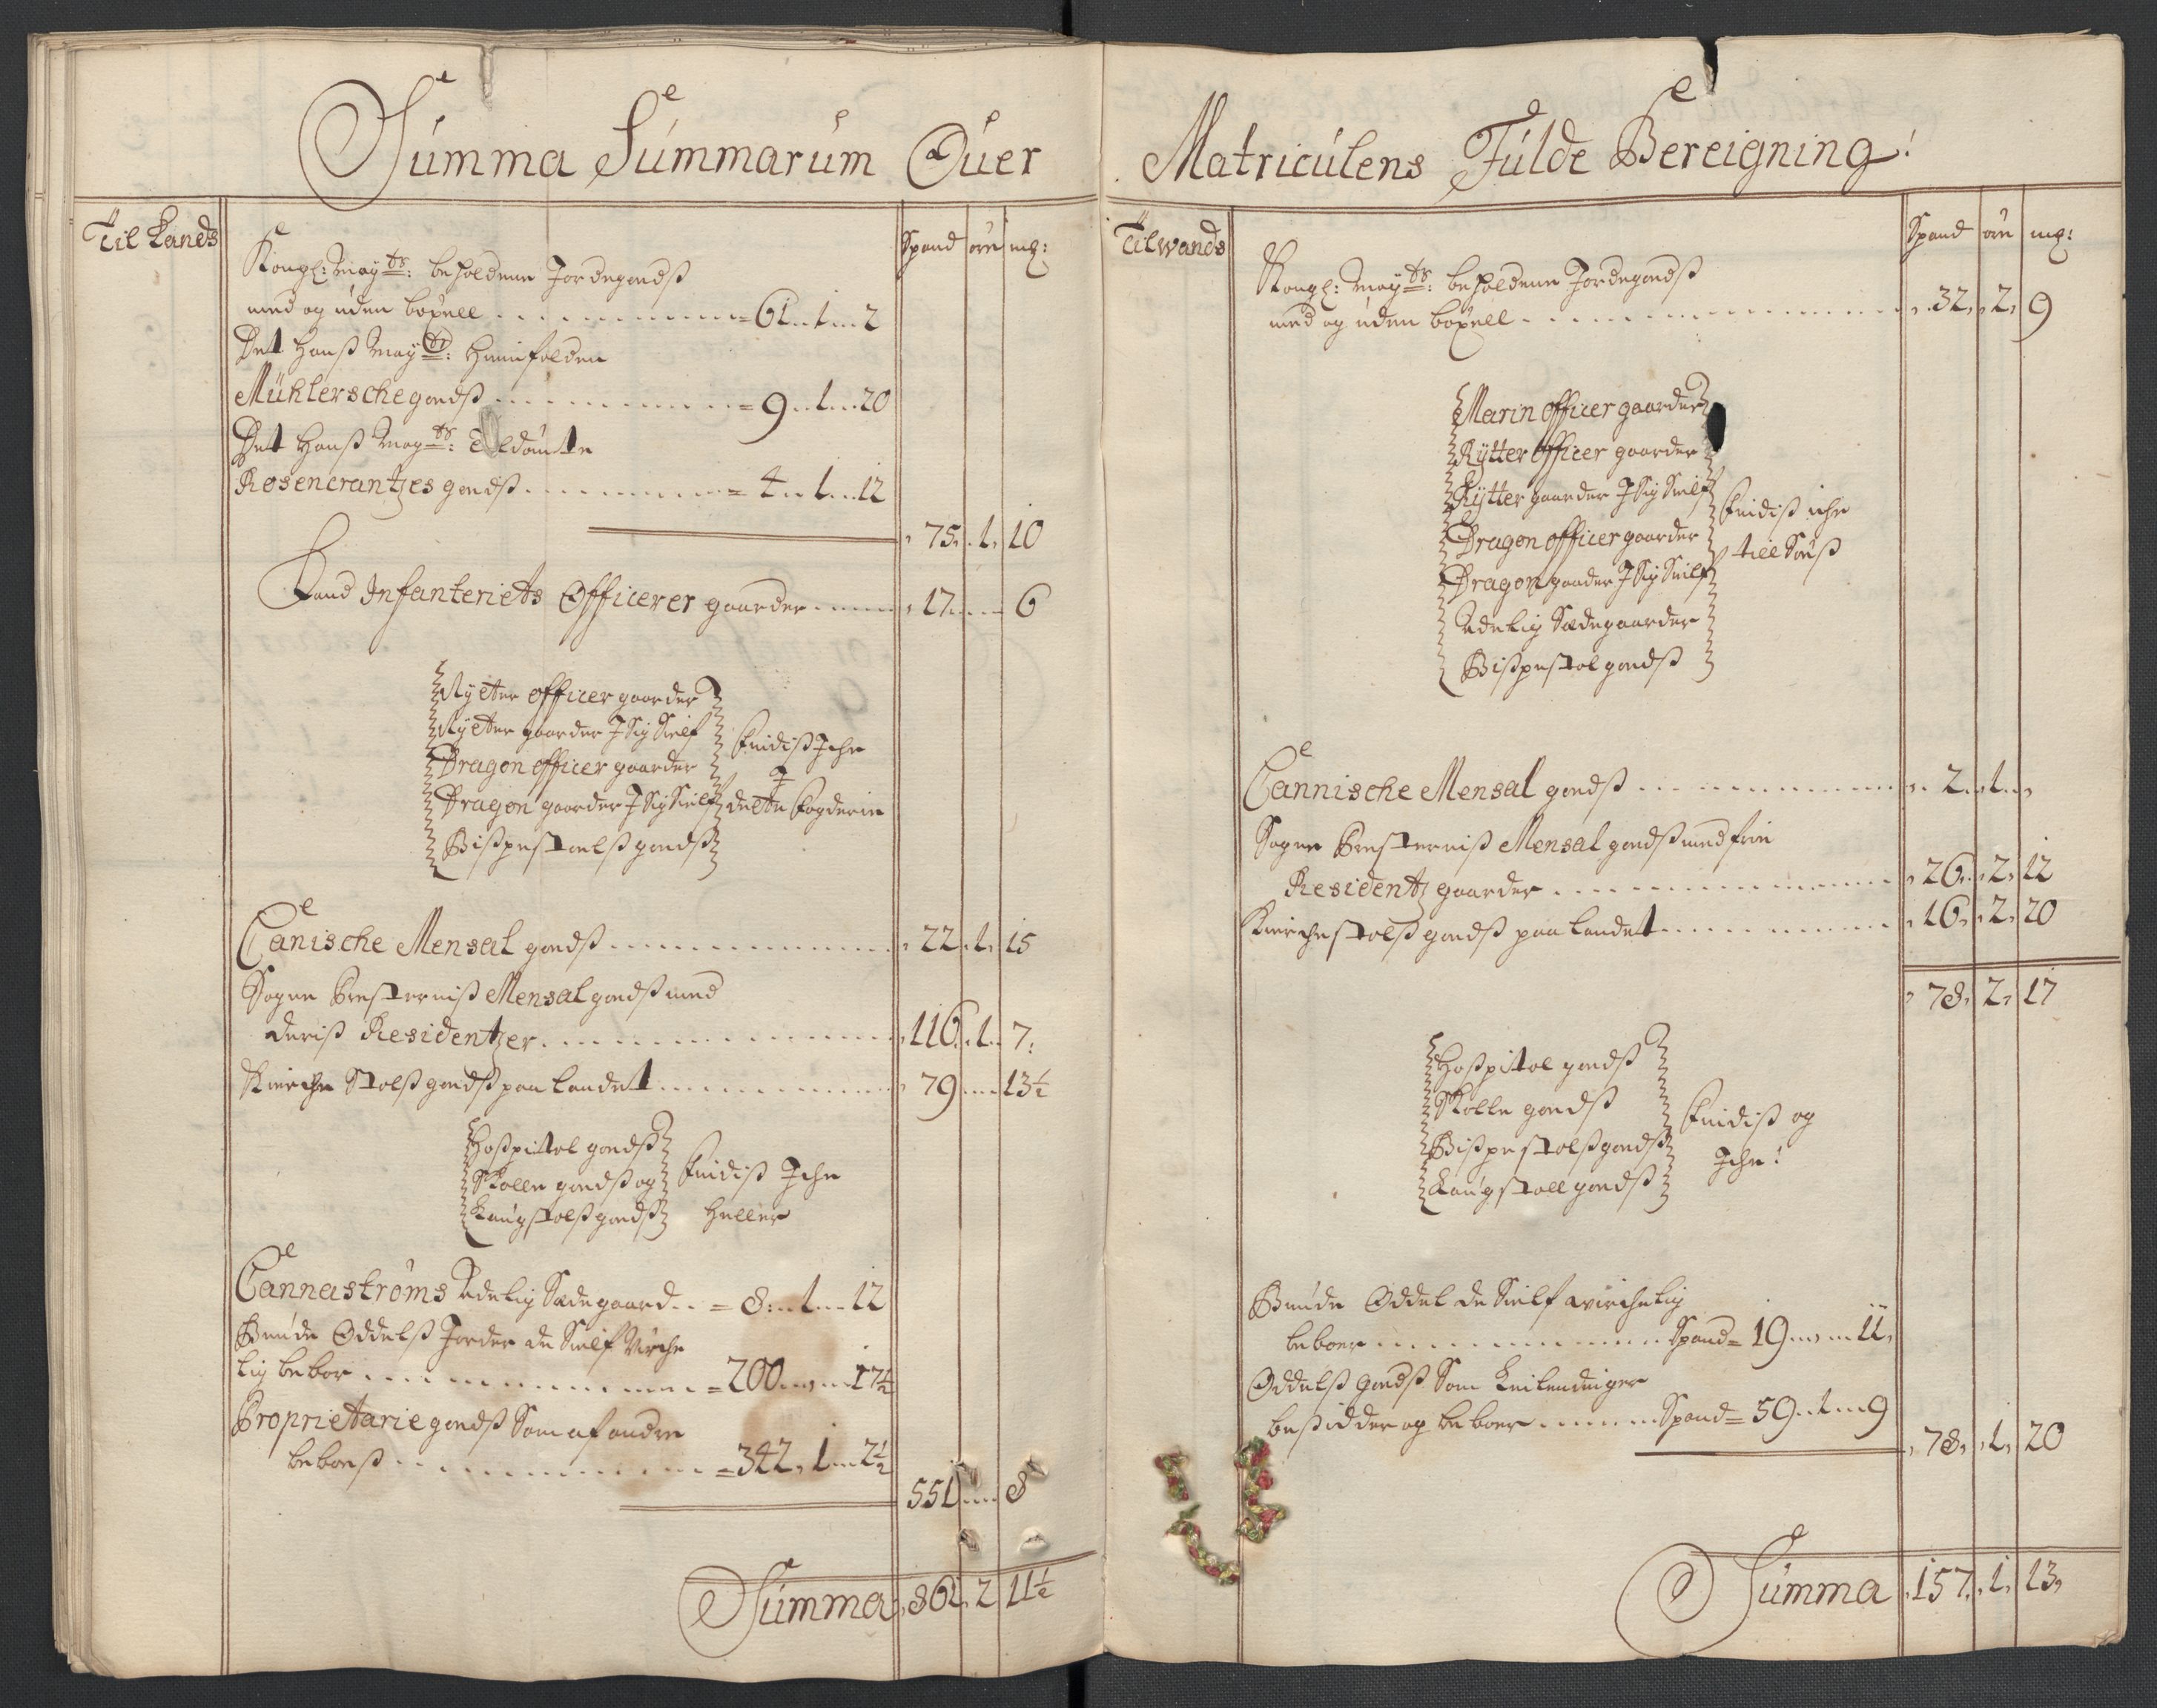 Summa Summarum Ofuer
Til Lands
Spand øre mg:
Kongl: May^ts: beholdene Jordegodß
med og uden boxell = 61 .. 1 .. 2
Det Hanß May^ts: Hiemfaldene
Mühlersche godß = 9 .. 1 .. 20
Det Hanß May^ts:
Rosencrantzes godß = 4 .. 1 .. 12
75. 1. 10
Land Infanteriets Officerer gaarder 17 .. 6
Rytter officer gaarder
Rytter gaarder J Sig Sielf
Dragon officer gaarder
Dragon gaarder J Sig Sielf
Bißpestoelß godß
findiß Iche
J
dette fogderie
Canische Mensal godß 22. 1. 15
Sogne Presterniß Mensal godß med
deriß Residentzer 116. 1. 7:
Kierche Stolß godß paa Landet 79 .. 13½
Hoßpital godß
Skolle godß og
Laugstolß godß
findiß Iche
heller
Cannestrøms Adelig Sædegaard = 8: .. 1 .. 12
Bunde Oddelß Jorder de Sielf Virche
lig bebor = 200 .. 17½
Proprietarie godß Som af andre
beboeß = 342. 1 .. 2½
551 .. 8
Summa 861. 2 11½
Matriculens Fulde Bereigning!
Til wands
Spand øre mg:
Kongl: May^ts: beholdene Jordegodß
med og uden boxell 32. 2. 9
Marin officer gaarder
Rytter officer gaarder
Rytter gaarder J Sig Sielf
Dragon officer gaarder
Dragon gaarder J Sig Sielf
Adelig Sædegaarder
Bißpestol godß
findiß iche
till Søeß
Cannische Mensal godß 2. 1.
Sogne Presterniß Mensal godß med frie
Residentz gaarder 26. 2. 12
Kierchestolß godß paa Landet 16. 2. 20
78. 2. 17
Hoßpital godß
Skolle godß
Bißpestolß godß
Laugstoell godß
findiß og
Iche!
Bunde Oddel de Sielf wirchelig
beboer Spand = 19 .. 11.
Oddelß godß Som Leilendinger
besidder og beboer Spand = 59 .. 1 .. 9
78. 1. 20
Summa 157. 1. 13.